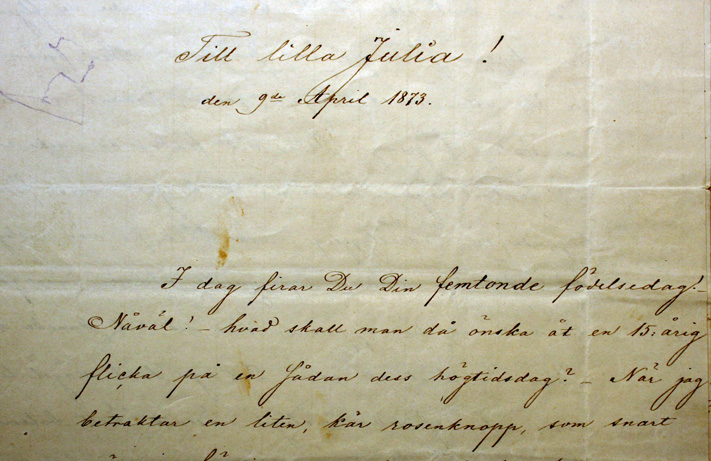 Till lilla Julia!
den 9de April 1873.
I dag firar Du Din femtonde födelsedag! –
Nåväl! – hvad skall man då önska åt en 15: årig
flicka på en sådan dess högtidsdag? – När jag
betraktar en liten, kär rosenknopp, som snart